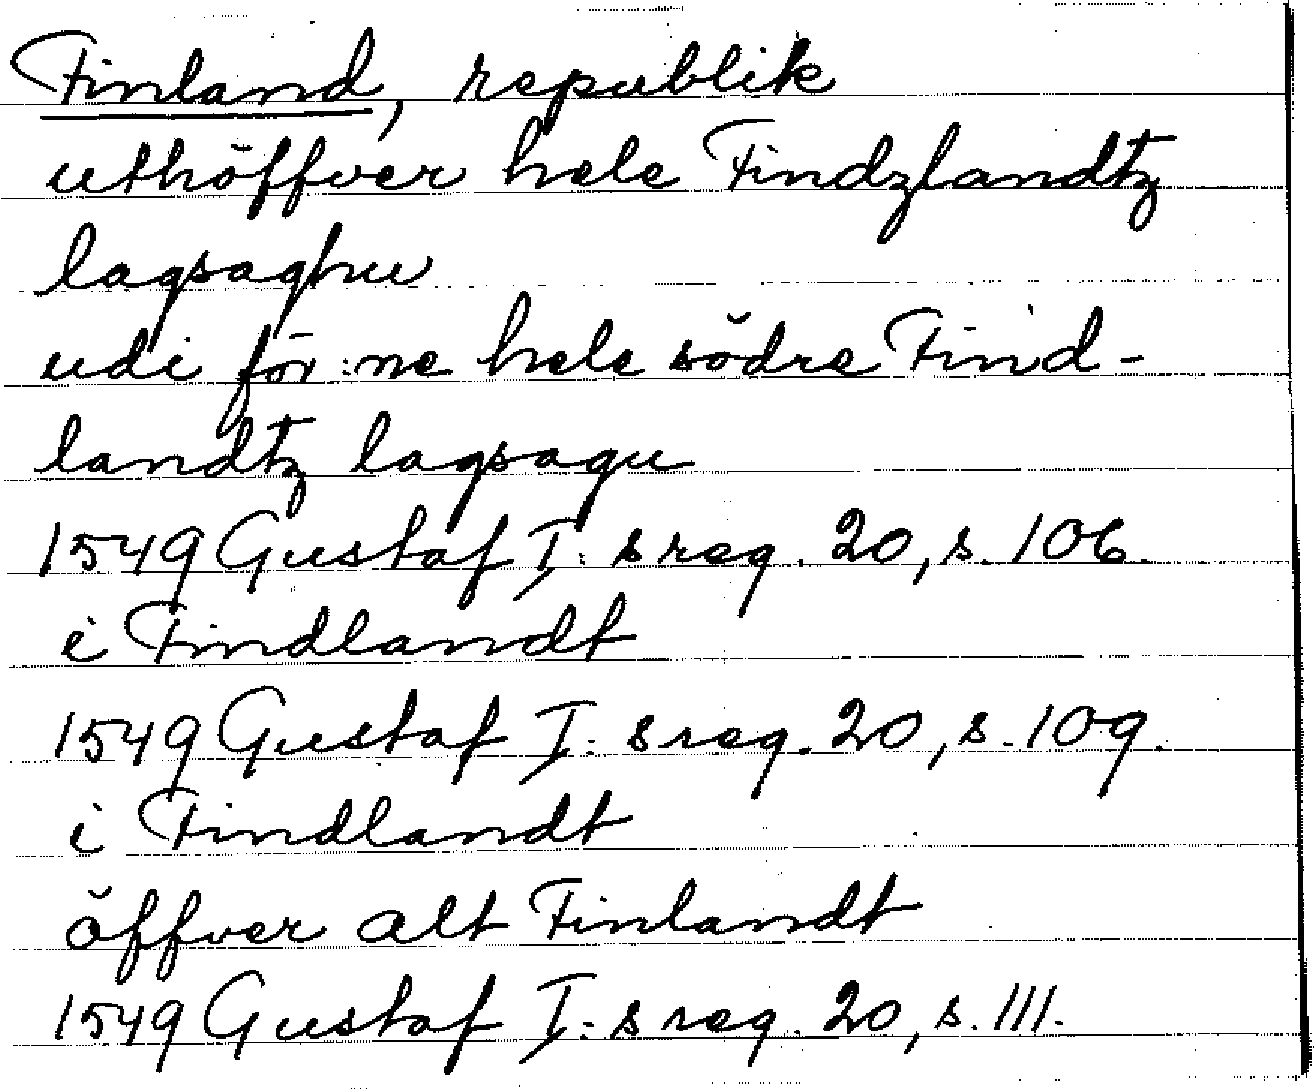 Finland, republik
uthöffver hele Findzlandtz
lagsaghu
udi för:ne hele södre Find-
landtz lagsagu
1549 Gustaf I:s reg. 20, s. 106.
i Findlandt
1549 Gustaf I:s reg. 20, s. 109.
i Findlandt
öffver alt Finlandt
1549 Gustaf I:s reg. 20, s. 111.